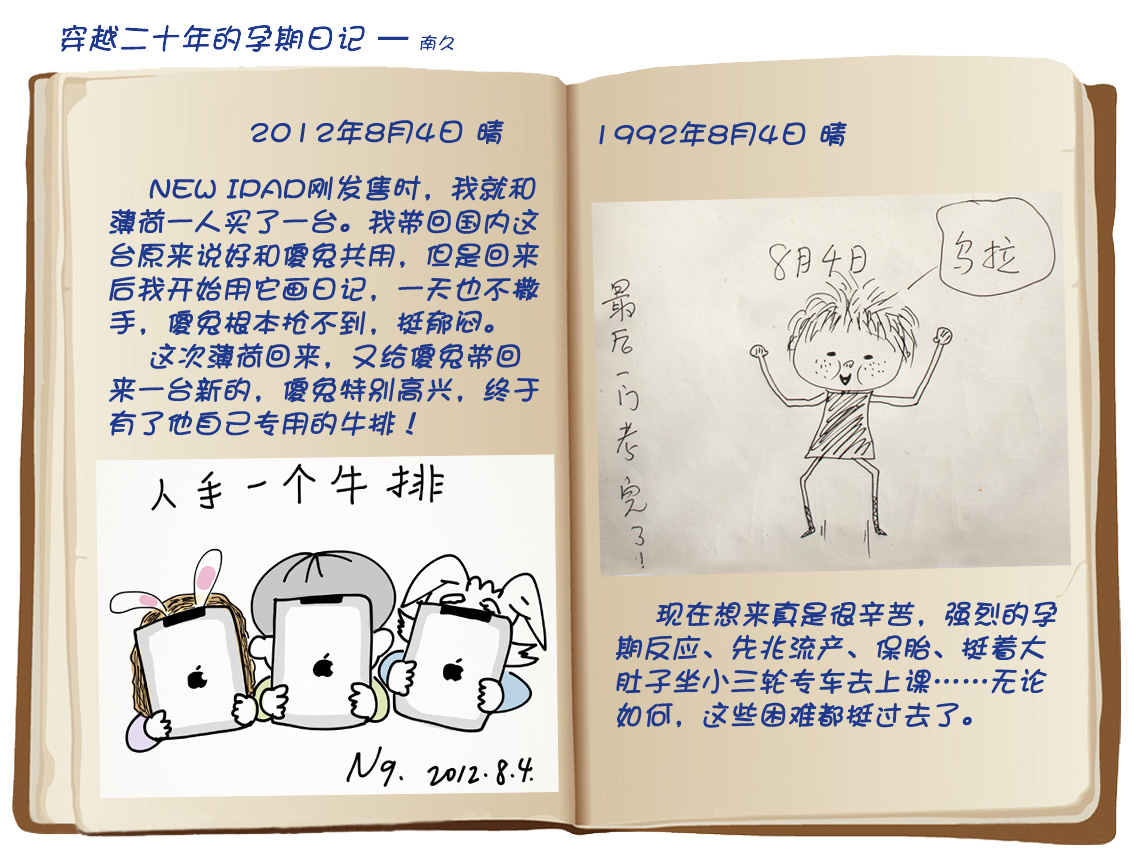 穿越二十年的孕期日记 — 南久
2012年8月4日 晴
NEW IPAD刚发售时，我就和
薄荷一人买了一台。我带回国内这
台原来说好和傻兔共用，但是回来
后我开始用它画日记，一天也不撒
手，傻兔根本抢不到，挺郁闷。
这次薄荷回来，又给傻兔带回
来一台新的，傻兔特别高兴，终于
有了他自己专用的牛排！
人手一个牛排
N9. 2012.8.4.
1992年8月4日 晴
8月4日
乌拉
最后一门考完了！
现在想来真是很辛苦，强烈的孕
期反应、先兆流产、保胎、挺着大
肚子坐小三轮专车去上课……无论
如何，这些困难都挺过去了。